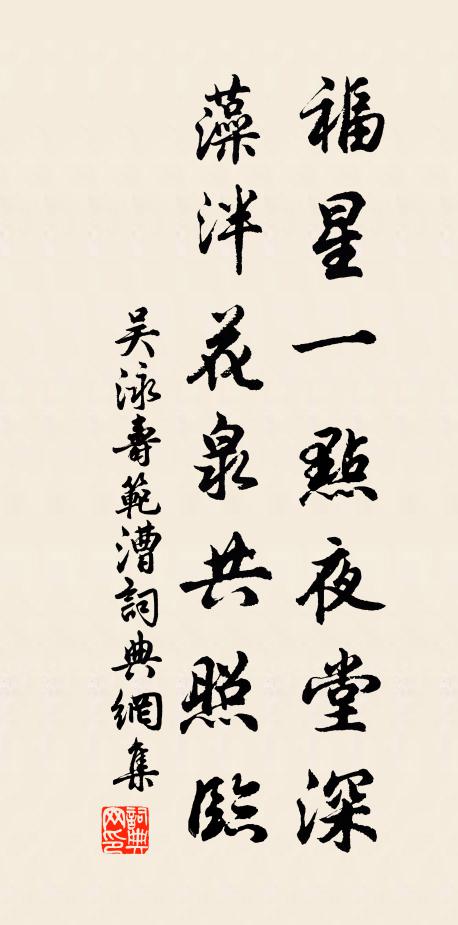 福星一點夜堂深
藻泮花泉共照臨
吴泳壽範漕詞典網集
詞典網印